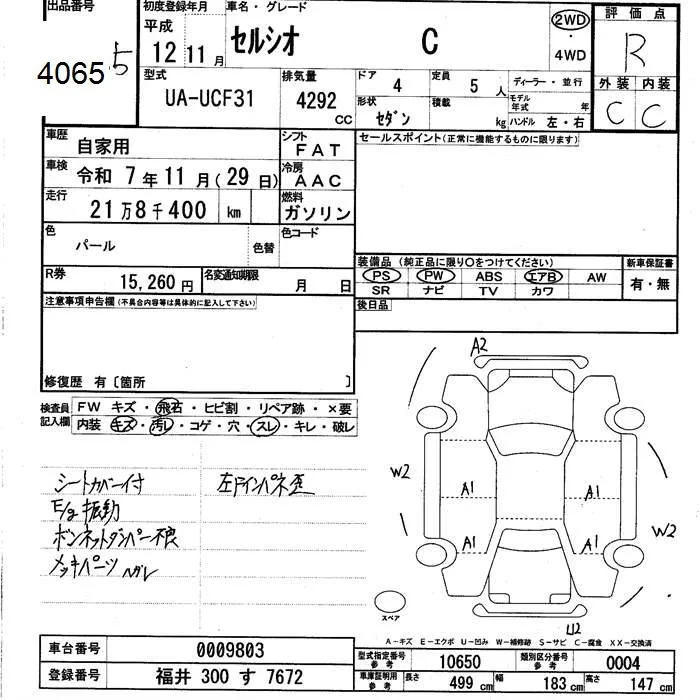 出品番号
40655
初度登録年月
平成 12年 11月
車名・グレード
セルシオ C
2WD
・
4WD
評価点
R
外装 内装
C C
型式
UA-UCF31
排気量
4292 CC
ドア 4
定員 5 人
ディーラー・並行
形状 セダン
積載 kg
モデル年式 年
ハンドル 左・右
車歴 自家用
シフト FAT
車検 令和 7年 11月 (29日)
冷房 AAC
走行 21万8千400 km
燃料 ガソリン
色 パール 色替
色コード
R券 15,260円
名変通知期限 月 日
セールスポイント(正常に機能するものに限ります)
装備品 (純正品に限り○をつけてください)
PS PW ABS エアB AW
SR ナビ TV カワ
新車保証書
有・無
後日品
注意事項申告欄 (不具合内容等は具体的に記入して下さい)
修復歴 有〔箇所 〕
検査員記入欄
FW キズ・飛石・ヒビ割・リペア跡・×要
内装 キズ・汚レ・コゲ・穴・スレ・キレ・破レ
シートカバー付
E/g振動
ボンネットダンパー不良
メッキパーツ ハガレ
左ドインパネ歪
A2
W2
A1 A1
W2
A1 A1
スペア
U2
A-キズ E-エクボ U-凹み W-補修跡 S-サビ C-腐食 XX-交換済
車台番号 0009803
登録番号 福井 300 す 7672
型式指定番号 参考 10650
類別区分番号 参考 0004
車庫証明用 参考
長さ 499 cm
幅 183 cm
高さ 147 cm